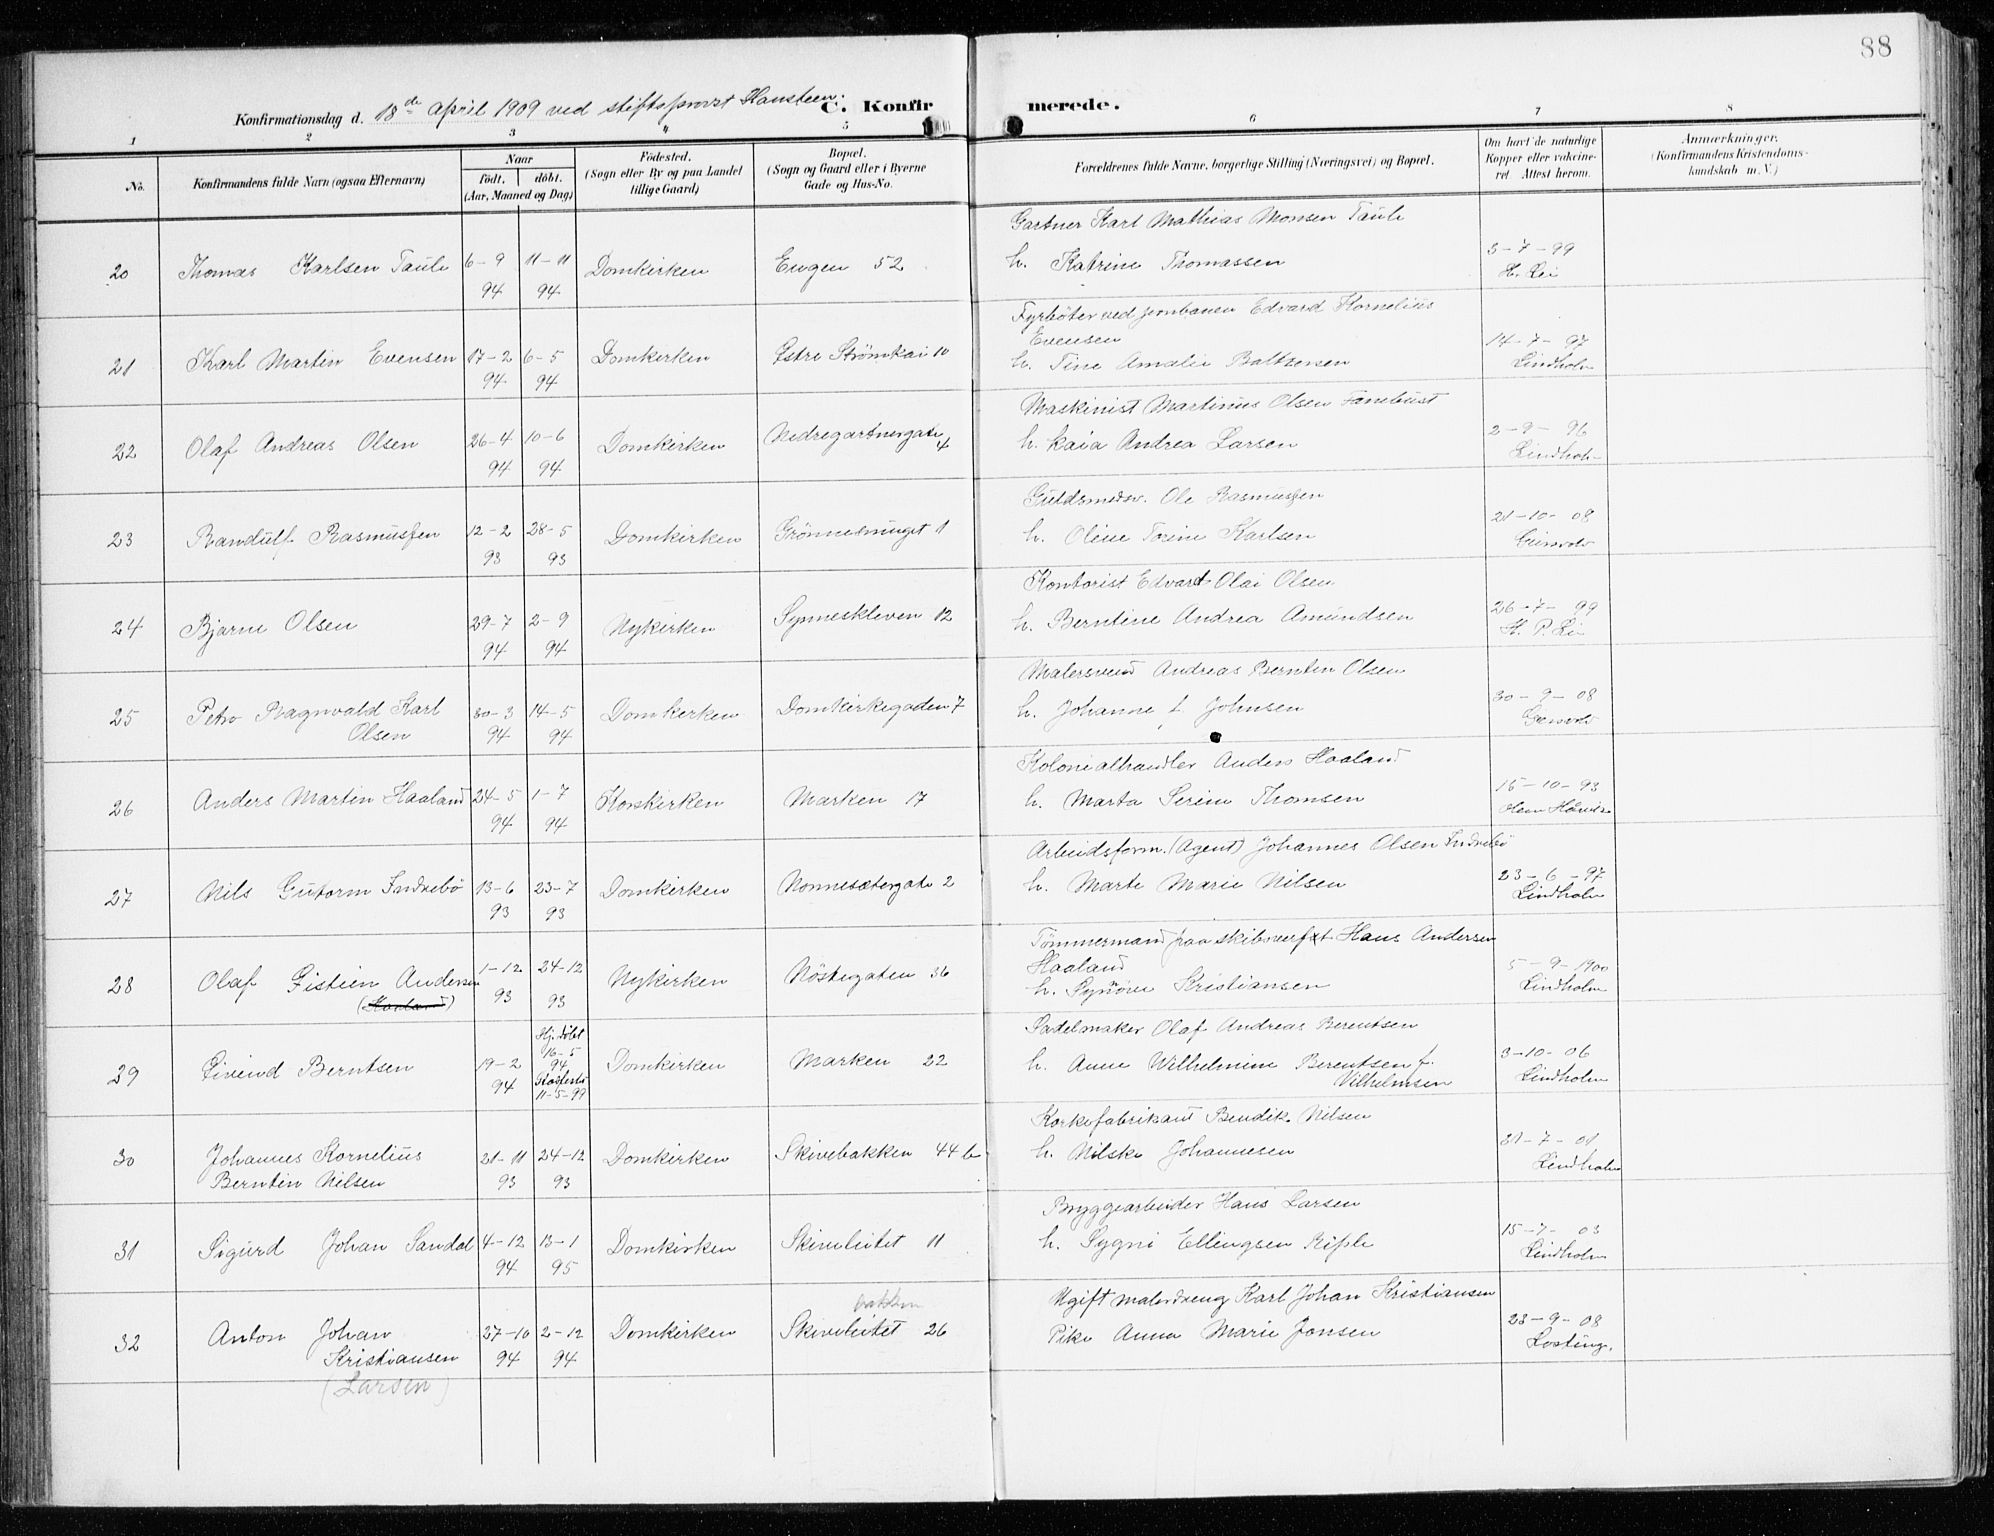 88
Konfirmationsdag d. 18de April 1909 ved stiftsprovst Hansteen. C. Konfirmerede.
1 2 3 4 5 6 7 8
No. Konfirmandens fulde Navn (ogsaa Efternavn) Naar født. døbt. (Aar, Maaned og Dag) Fødested. (Sogn eller By og paa Landet tillige Gaard) Bopæl. (Sogn og Gaard eller i Byerne Gade og Hus-No. Forældrenes fulde Navne, borgerlige Stilling (Næringsvei) og Bopæl. Om havt de naturlige Kopper eller vakcineret. Attest herom. Anmærkninger. (Konfirmandens Kristendomskundskab m. V.)
Gartner Karl Mathias Monsen Taule
20 Thomas Karlsen Taule 6-9 94 11-11 94 Domkirken Engen 52 h. Katrine Thomassen 3-7-99 H. Lie
Fyrbøter ved jernbanen Edvard Kornelius
Evensen
21 Karl Martin Evensen 17-2 94 6-5 94 Domkirken Østre Strømkai 10 h. Tine Amalie Baltzersen 14-7-97 Lindholm
Maskinist Martinus Olsen Fanebust
22 Olaf Andreas Olsen 26-4 94 10-6 94 Domkirken Nedregartnergate 4 h. Kaia Andrea Larsen 2-9-96 Lindholm
Guldsmedsv. Ole Rasmussen
23 Randulf Rasmussen 12-2 93 28-5 93 Domkirken Grønnesmuget 1 h. Oline Torine Karlsen 21-10-08
Kontorist Edvart Olai Olsen
24 Bjarne Olsen 29-7 94 2-9 94 Nykirken Synneskleven 12 h. Berntine Andrea Amundsen 26-7-99 H. P. Lie
Malersvend Andreas Berntin Olsen
25 Petro Ragnvald Karl 30-3 94 14-5 94 Domkirken Domkirkegaden 7 h. Johanne f. Johnsen 30-9-08
Olsen
Kolonialhandler Anders Haaland
26 Anders Martin Haaland 24-5 94 1-7 94 Korskirken Marken 17 h. Marta Serine Thomsen 15-10-93
Arbeidsform. (Agent) Johannes Olsen Indrebø
27 Nils Gutorm Indrebø 13-6 93 23-7 93 Domkirken Nonnesætergate 2 h. Marte Marie Nilsen 23-6-97 Lindholm
Tømmermand paa skibsverft Hans Andersen
Haaland
28 Olaf Eistein Andersen 1-12 93 24-12 93 Nykirken Nöstegaten 36 h. Synöve Kristiansen 5-9-1900 Lindholm
(Haaland)
Sadelmaker Olaf Andreas Berentsen
29 Eivind Berntsen 19-2 94 Hj. døbt 16-5 94 Stadfestet 11-5-99 Domkirken Marken 22 h. Anne Wilhelmine Berentsen f. 3-10-06 Lindholm
Vilhelmsen
Korkefabrikant Bendik Nilsen
30 Johannes Kornelius 21-11 93 24-12 93 Domkirken Skivebakken 44 b h. Nilske Johannesen 21-7-01 Lindholm
Berntin Nilsen
Bryggearbeider Hans Larsen
31 Sigurd Johan Sandal 4-12 94 13-1 95 Domkirken Skiveleitet 11 h. Sygni Ellingsen Riple 15-7-03 Lindholm
Ugift malerdreng Karl Johan Kristiansen
bakken
32 Anton Johan 27-10 94 2-12 94 Domkirken Skiveleitet 26 Pike Anna Marie Jonsen 23-9-08
Kristiansen
(Larsen)